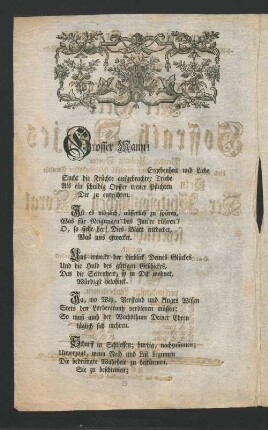 Grosser Mann:
Ergebenheit und Liebe
Sucht die Früchte aufgebrachter Triebe
Als ein schuldig Opffer treuer Pflichten
Dir zu entrichten.
Ist es möglich, äusserlich zu spüren,
Was für Regungen das Inn're rühren?
O, so siehe hier! Dies Blatt entdecket,
Was uns erwecket.
Uns erweckt der Anblick Deines Glückes
Und die Huld des gütigen Geschickes,
Das die Seltenheit, so in Dir wohnet,
Würdigst belohnet.
Ja, wo Witz, Verstand und kluges Wesen
Stets den Lorbeercrantz verdienen müssen:
So muß auch der Wachsthum Deiner Ehren
täglich sich mehren.
Scharff in Schlüssen; hurtig, nachzusinnen;
Unverzagt, wenn Neid und List beginnen
Die bedrängte Wahrheit zu bestürmen,
Sie zu beschirmen;